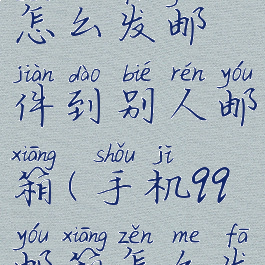 怎么发邮
jiàn dào bié rén yóu
件到别人邮
xiāng shǒu jī
箱(手机99
yóu xiāng zěn me fā
邮箱怎么发